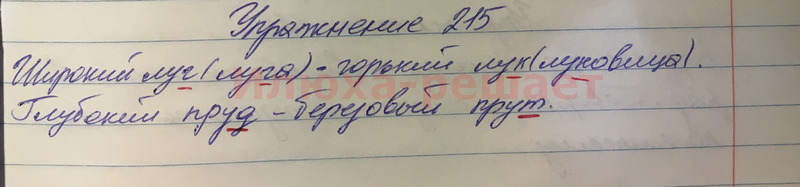 Упражнение 215
Широкий луг (луга) - горький лук (луковица).
алюха-решает
Глубокий пруд - берёзовый прут.